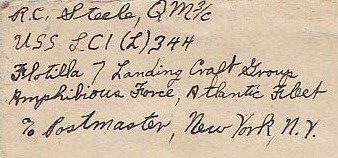 R.C. Steele, QM 3/c
USS LCI (L) 344
Flotilla 7 Landing Craft Group
Amphibious Force, Atlantic Fleet
℅ Postmaster, New York, N.Y.